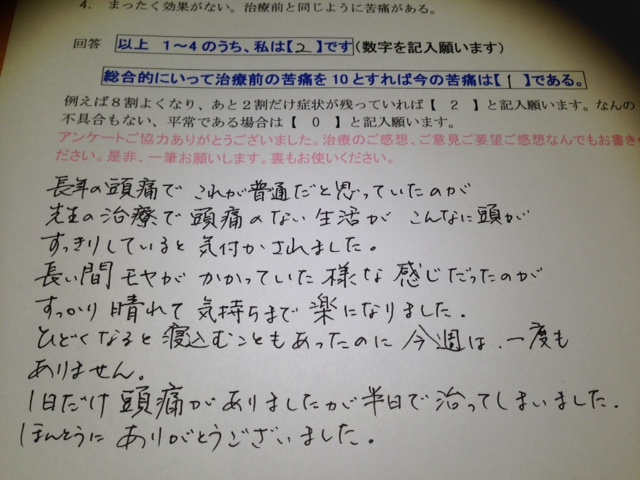 4. まったく効果がない。治療前と同じように苦痛がある。
回答 以上 1~4のうち、私は【2】です(数字を記入願います)
総合的にいって治療前の苦痛を10とすれば今の苦痛は【1】である。
例えば8割よくなり、あと2割だけ症状が残っていれば【 2 】と記入願います。なんの
不具合もない、平常である場合は【 0 】と記入願います。
アンケートご協力ありがとうございました。治療のご感想、ご意見ご要望ご感想なんでもお書き
ださい。是非、一筆お願いします。裏もお使いください。
長年の頭痛で これが普通だと思っていたのが
先生の治療で頭痛のない生活が こんなに頭が
すっきりしていると気付かされました。
長い間モヤが かかっていた様な感じだったのが
すっかり晴れて気持ちまで楽になりました。
ひどくなると寝込むこともあったのに今週は、一度も
ありません。
1日だけ頭痛がありましたが半日で治ってしまいました。
ほんとうに ありがとうございました。